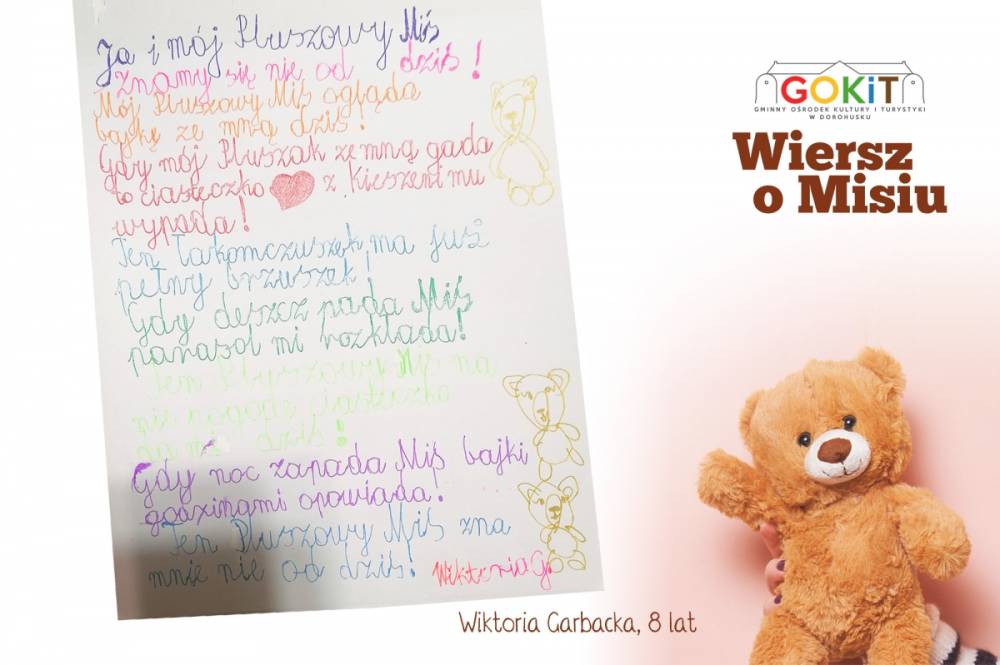 Ja i mój Pluszowy Miś
Znamy się nie od dziś!
Mój Pluszowy Miś ogląda
bajkę ze mną dziś!
Gdy mój Pluszak ze mną gada
to ciasteczko z Kieszeni mu
wypada!
Ten Łakomczuszek, ma już
pełny brzuszek!
Gdy deszcz pada Miś
parasol mi rozkłada!
Ten Pluszowy Miś na
nie pogodę ciasteczko
da mi dziś!
Gdy noc zapada Miś bajki
godzinami opowiada.
Ten Pluszowy Miś zna
mnie nie od dziś!
Wiktoria G.
GOKiT
GMINNY OŚRODEK KULTURY I TURYSTYKI
W DOROHUSKU
Wiersz
o Misiu
Wiktoria Garbacka, 8 lat